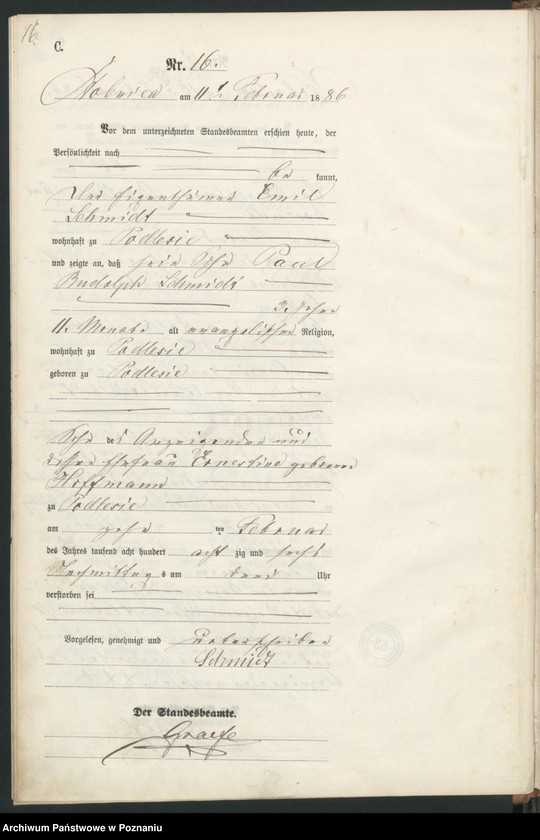 16.
C.
Nr. 16.
am 11t Februar 1886
Vor dem unterzeichneten Standesbeamten erschien heute, der
Persönlichkeit nach
be kannt,
Der Eigenthümer Emil
Schmidt
wohnhaft zu Podlesie
und zeigte an, daß sein Sohn Paul
Rudolph Schmidt
3. Jahre
11. Monate alt evangelischer Religion,
wohnhaft zu Podlesie
geboren zu Podlesie
Sohn des Anzeigenden und
dessen Ehefrau Ernestine geborene
Hoffmann
zu Podlesie
am zehn ten Februar
des Jahres tausend acht hundert acht zig und sechs
Nachmittag s um drei Uhr
verstorben sei
Vorgelesen, genehmigt und unterschrieben
Schmidt
Der Standesbeamte.
Graefe
Archiwum Państwowe w Poznaniu